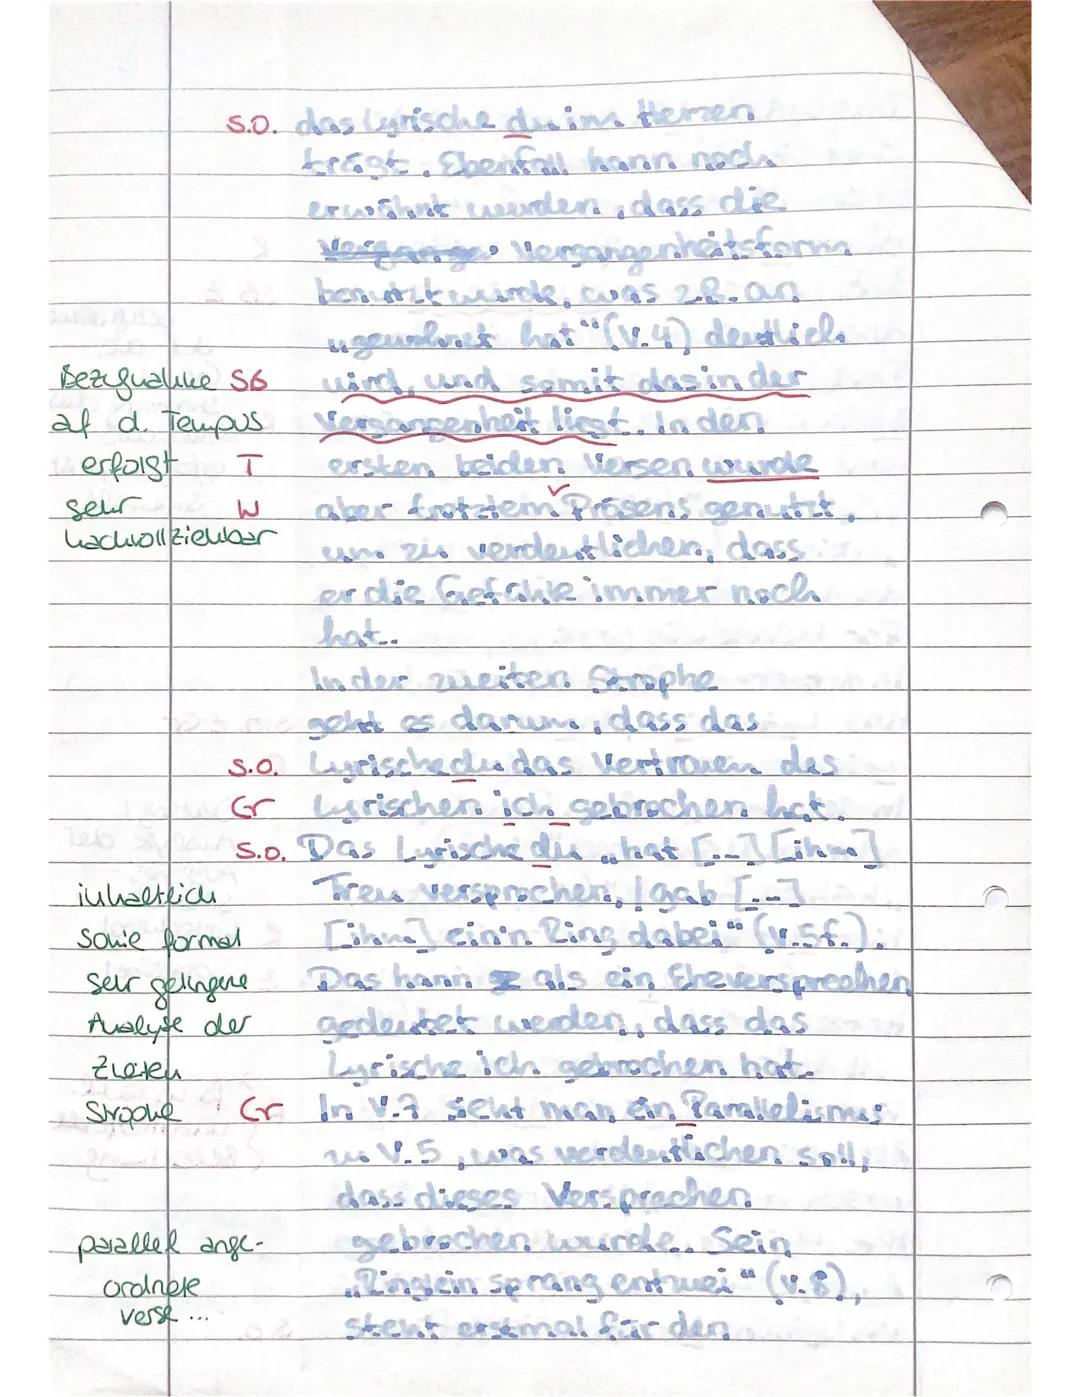 S.O. das lyrische du im Herzen
trägt. Ebenfall kann noch
erwähnt werden, dass die
Vergangenheitsform
benutzt wurde, was z.B. an
„gewohnet hat" (V.4) deutlich
Bezugnahme SB wird, und somit das in der
af d. Tempus Vergangenheit liegt. In den
erfolgt T ersten beiden Versen wurde
sehr W aber trotzdem ✓ Präsens genutzt,
nachvollziehbar
um zu verdeutlichen, dass
er die Gefühle immer noch
hat.
In der zweiten Strophe
geht es darum, dass das
S.O. Lyrische du das Vertrauen des
Gr Lyrischen ich gebrochen hat.
S.O. Das Lyrische du „hat [...] [ihm]
inhaltlich Treu versprochen, | gab [...]
sowie formal [ihm] ein'n Ring dabei" (V.5f.).
sehr gelungene Das kann als ein Eheversprechen
Analyse der gedeutet werden, dass das
zweiten Lyrische ich gebrochen hat.
Strophe Gr In V.7 sieht man ein Parallelismus
zu V.5, was verdeutlichen soll,
dass dieses Versprechen
parallel ange- gebrochen wurde. Sein
ordnete „Ringlein sprang entzwei" (V.8),
Verse ... steht erstmal für den